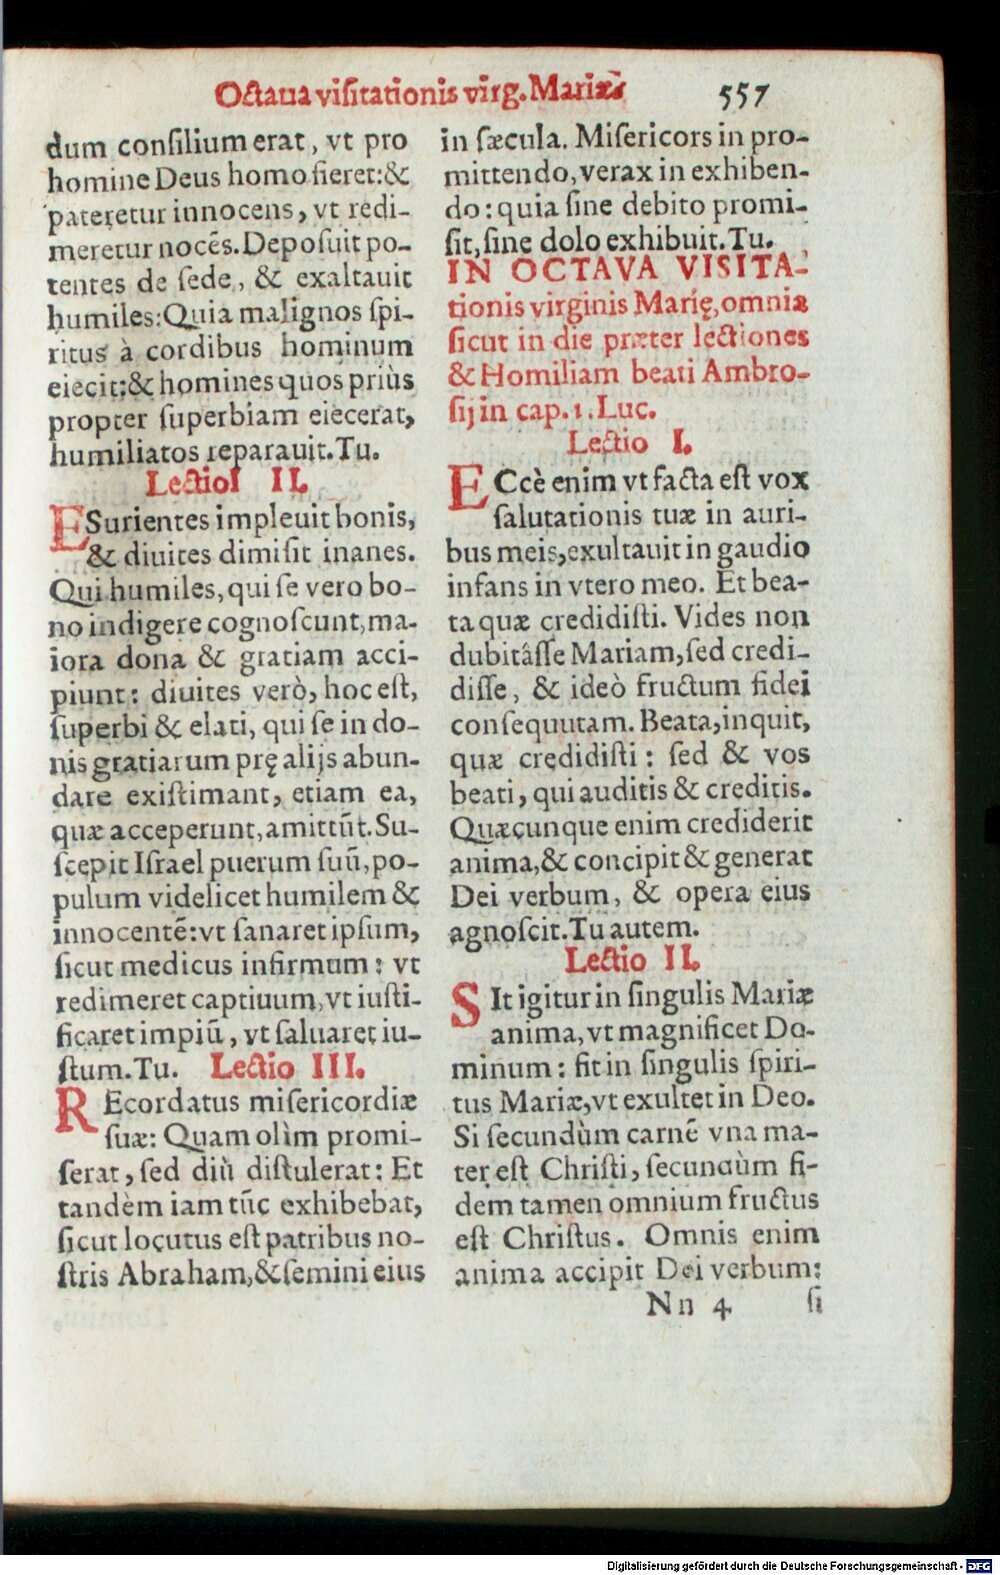 Octaua visitationis virg. Mariæ. 557
dum consilium erat, vt pro
homine Deus homo fieret: &
pateretur innocens, vt redi-
meretur nocẽs. Deposuit po-
tentes de sede, & exaltauit
humiles: Quia malignos spi-
ritus à cordibus hominum
eiecit: & homines quos priùs
propter superbiam eiecerat,
humiliatos reparauit. Tu.
Lectio II.
ESurientes impleuit bonis,
& diuites dimisit inanes.
Qui humiles, qui se vero bo-
no indigere cognoscunt, ma-
iora dona & gratiam acci-
piunt: diuites verò, hoc est,
superbi & elati, qui se in do-
nis gratiarum prę alijs abun-
dare existimant, etiam ea,
quæ acceperunt, amittũt. Su-
scepit Israel puerum suũ, po-
pulum videlicet humilem &
innocentẽ: vt sanaret ipsum,
sicut medicus infirmum: vt
redimeret captiuum, vt iusti-
ficaret impiũ, vt saluaret iu-
stum. Tu. Lectio III.
REcordatus misericordiæ
suæ: Quam olìm promi-
serat, sed diù distulerat: Et
tandèm iam tũc exhibebat,
sicut locutus est patribus no-
stris Abraham, & semini eius
in sæcula. Misericors in pro-
mittendo, verax in exhiben-
do: quia sine debito promi-
sit, sine dolo exhibuit. Tu.
IN OCTAVA VISITA-
tionis virginis Marię, omnia
sicut in die præter lectiones
& Homiliam beati Ambro-
sij in cap. 1. Luc.
Lectio I.
ECcè enim vt facta est vox
salutationis tuæ in auri-
bus meis, exultauit in gaudio
infans in vtero meo. Et bea-
ta quæ credidisti. Vides non
dubitâsse Mariam, sed credi-
disse, & ideò fructum fidei
consequutam. Beata, inquit,
quæ credidisti: sed & vos
beati, qui auditis & creditis.
Quæcunque enim crediderit
anima, & concipit & generat
Dei verbum, & opera eius
agnoscit. Tu autem.
Lectio II.
SIt igitur in singulis Mariæ
anima, vt magnificet Do-
minum: fit in singulis spiri-
tus Mariæ, vt exultet in Deo.
Si secundùm carnẽ vna ma-
ter est Christi, secundùm fi-
dem tamen omnium fructus
est Christus. Omnis enim
anima accipit Dei verbum:
Nn 4 si
Digitalisierung gefördert durch die Deutsche Forschungsgemeinschaft - DFG